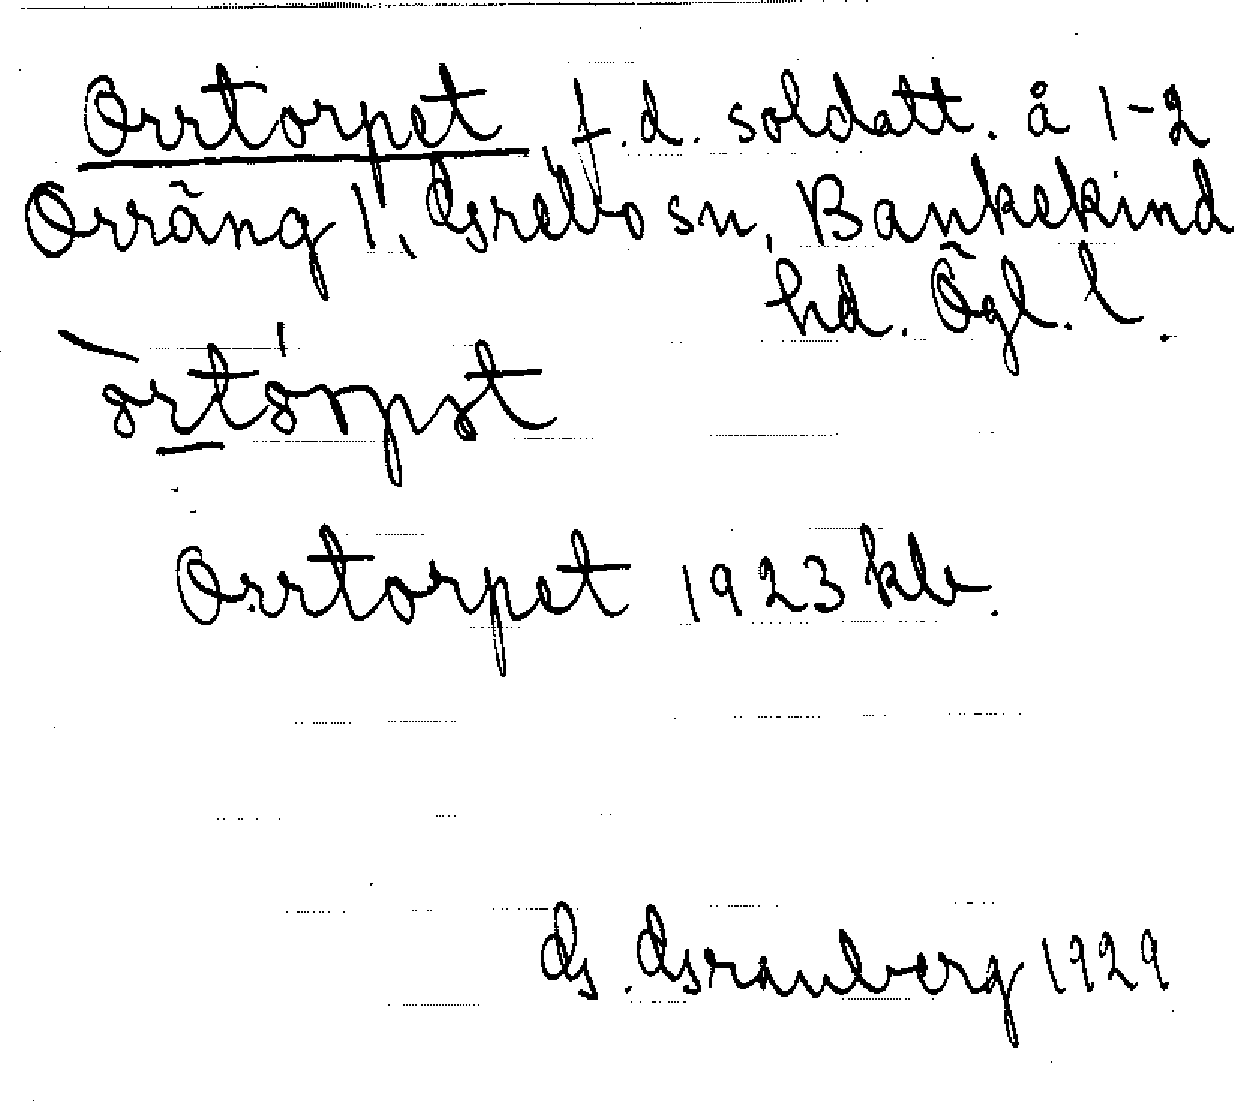 Orrtorpet f.d. soldatt. å 1-2
Orräng 1, Grebo sn, Bankekind
hd. Ögl. l.
Orrtorpet 1923 kbr.
G. Granberg 1929